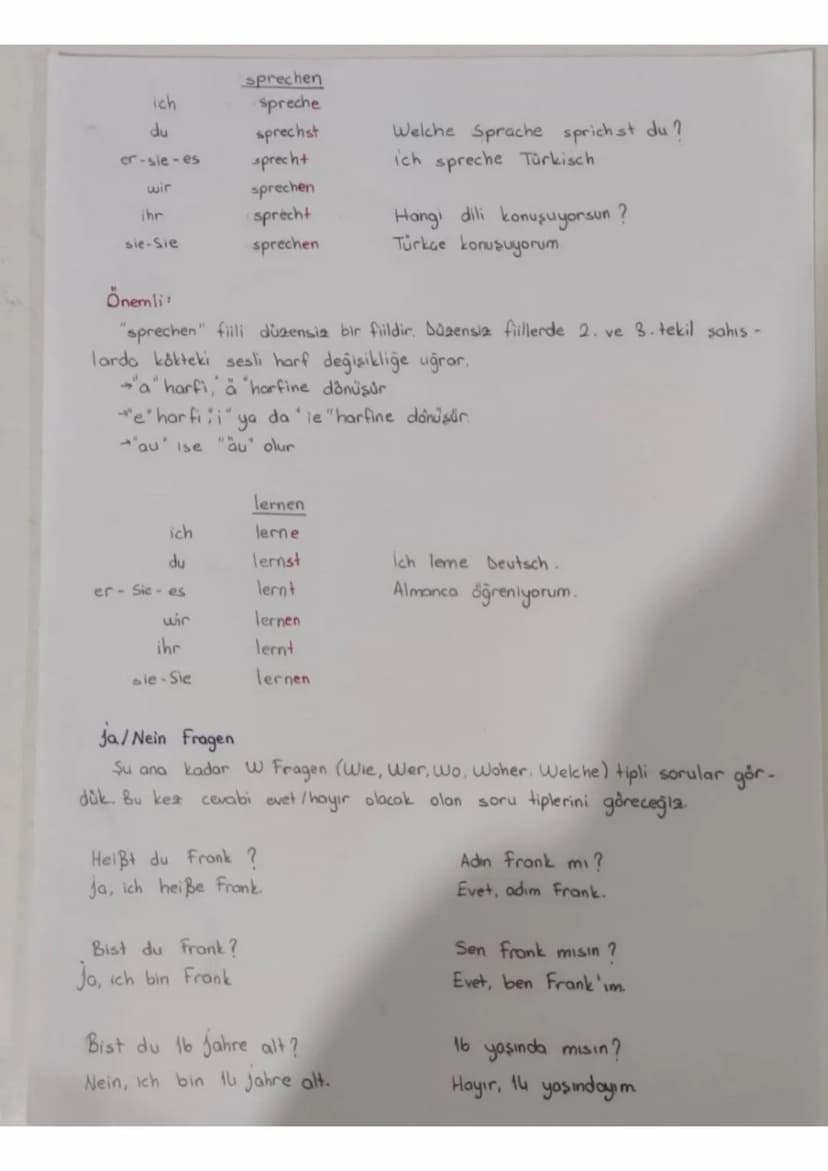 sprechen
ich spreche
du sprechst Welche Sprache sprichst du?
er-sie-es sprecht ich spreche Türkisch
wir sprechen
ihr sprecht Hangi dili konuşuyorsun?
sie-Sie sprechen Türkçe konuşuyorum
Önemli:
"sprechen" fiili düzensiz bir fiildir. Düzensiz fiillerde 2. ve 3. tekil şahıs-
larda kökteki sesli harf değişikliğe uğrar.
→"a" harfi, "ä" harfine dönüşür
→"e" harfi; "i" ya da "ie" harfine dönüşür.
→"au" ise "äu" olur
lernen
ich lerne
du lernst Ich lerne Deutsch.
er-Sie-es lernt Almanca öğreniyorum.
wir lernen
ihr lernt
sie-Sie lernen
Ja/Nein Fragen
Şu ana kadar W Fragen (Wie, Wer, Wo, Woher, Welche) tipli sorular gör-
dük. Bu kez cevabi evet/hayır olacak olan soru tiplerini göreceğiz.
Heißt du Frank? Adın Frank mı?
Ja, ich heiße Frank. Evet, adım Frank.
Bist du Frank? Sen Frank mısın?
Ja, ich bin Frank Evet, ben Frank'ım
Bist du 16 Jahre alt? 16 yaşında mısın?
Nein, ich bin 14 Jahre alt. Hayır, 14 yaşındayım